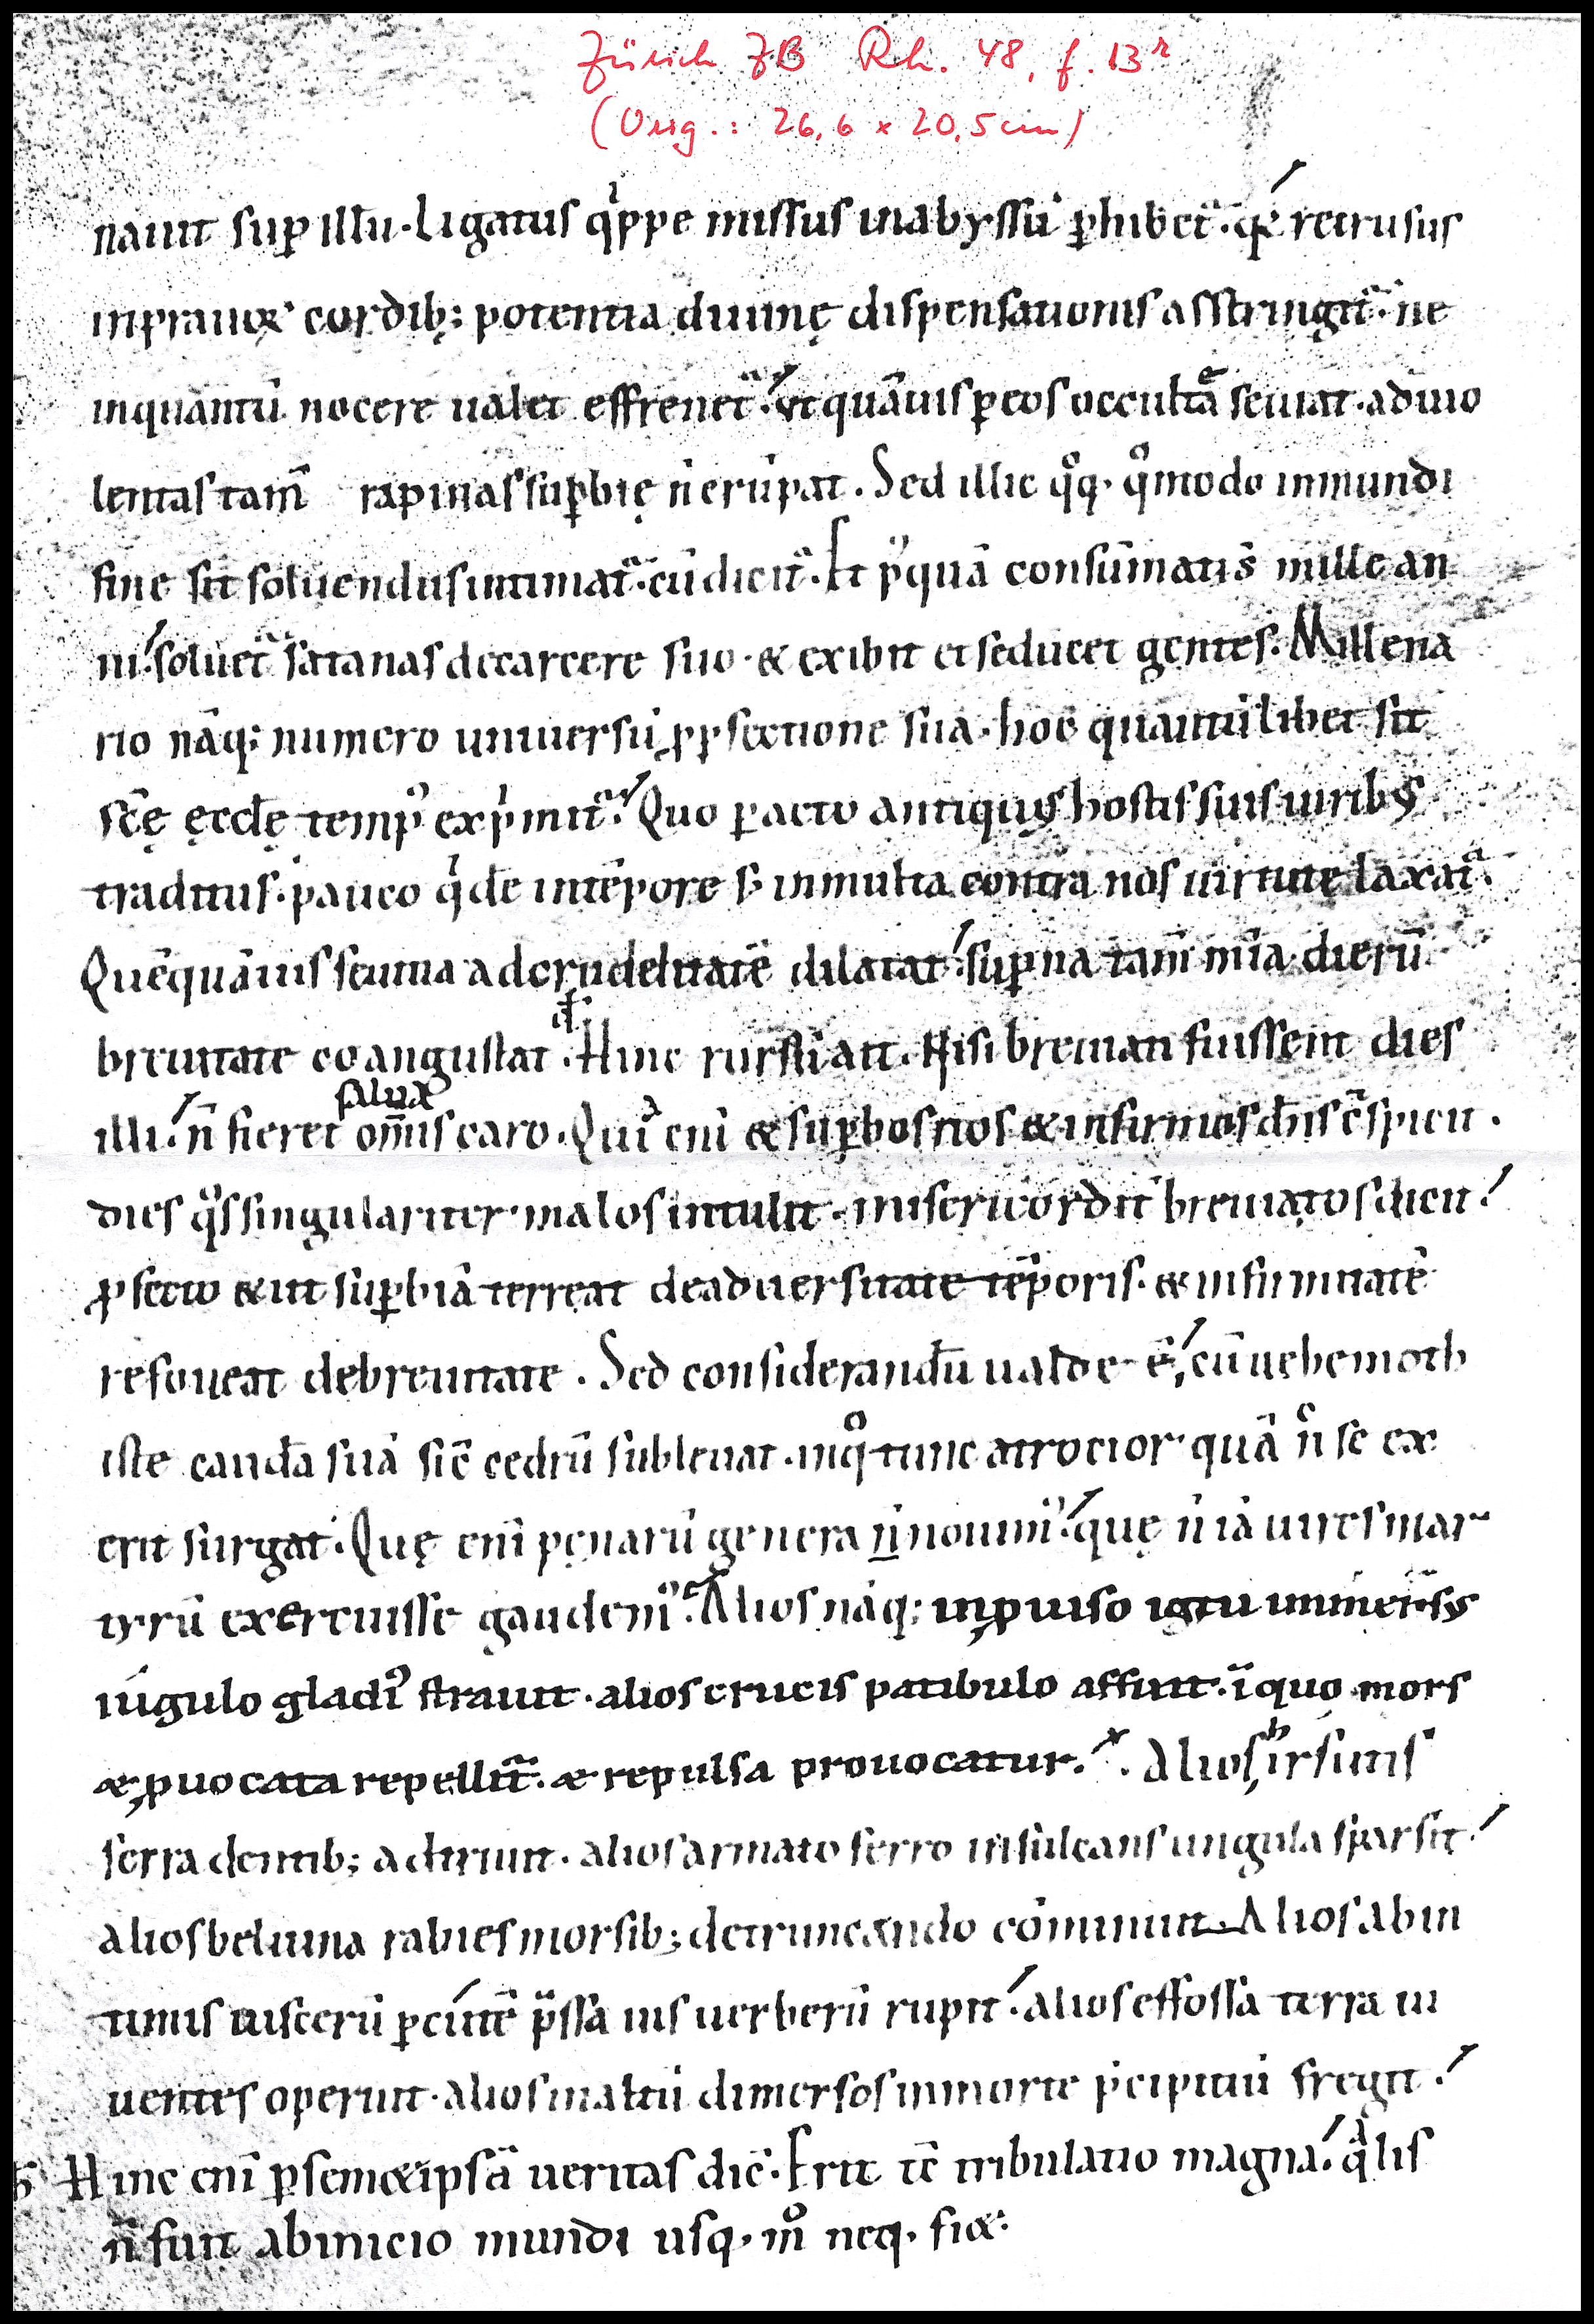 Zürich ZB Rh. 48, f. 13r
(Orig.: 26,6 x 20,5 cm)
nauit sup̱ illū· Ligatus qͥppe missus inabyssū ꝑhibet᷑· qꝛ́ retrusus
inprauoꝝ cordib; potentia diuinę dispensationis asstringit᷑· ne
inquantū nocere ualet effrenet᷑· ut quāuis ꝑeos occultę̄ seuiat· aduio
lentas tam̄ rapinas suꝑbię n̄ erūpat. Sed illic qͦq· qͦmodo inmundi
fine sit soluendus intimat᷑· cū dicit᷑· Et p᷒quā consūmatis mille an
ni· soluet᷑ satanas decarcere suo· & exibit et seducet gentes· Millena
rio nāq; numero uniuersū ꝓꝑfectione sua· hoc quantūlibet sit
sc̄ę ęccl̄ę temp᷒ exp̍mit᷑· Quo ꝑacto antiquus hostis suis uirib᷒
traditus· pauco qͥdē intēpore s; inmulta contra nos uirtute laxat᷑·
Quēquāuis seuitia adcrudelitatē dilatat· suꝑna tam̄ mīa dierū
breuitate coangustat· Hinc rursū ait· Nisi breuiati fuissent dies
salua
illi· n̄ fieret om̄is caro· Quia enī & suꝑbos nos & infirmos dn̄s c̄spicit·
dies qͦs singulariter malos intulit· misericordit᷑ breuiatos dicit·
ꝓfecto & ut suꝑbiā terreat deaduersitate tēporis· & infirmitatē
refoueat debreuitate· Sed considerandū ualde· ē· cū uehemoth
iste caudā suā sic̄ cedrū subleuat· inqͦ tunc atrocior quā n̄c se ex
erit surgat· Quę enī pęnarū genera n̄ nouim᷒· quę n̄ iā uires mar
tyrū exercuisse gaudem᷒· Alios nāq; inꝓuiso ictu immers᷒
iugulo gladi᷒ strauit· alios crucis patibulo affixit· ī quo mors
& ꝓuocata repellit᷑· & repulsa prouocatur· Alios hirsutis
serra dentib; adtriuit· alios armato ferro insulcans ungula sparsit·
alios beluina rabies morsib; detruncando cōminuit· Alios abin
timis uiscerū ꝑcutē p̄ssa uis uerberū rupit· alios effossa terra ui
uentes operuit· alios inaltū dimersos inmorte p̄cipitiū fregit·
Hinc enī ꝑ semetipsā ueritas dic̄· Erit tc̄ tribulatio magna· qͣlis
n̄ fuit abinicio mundi usq· mͦ neq· fiet·